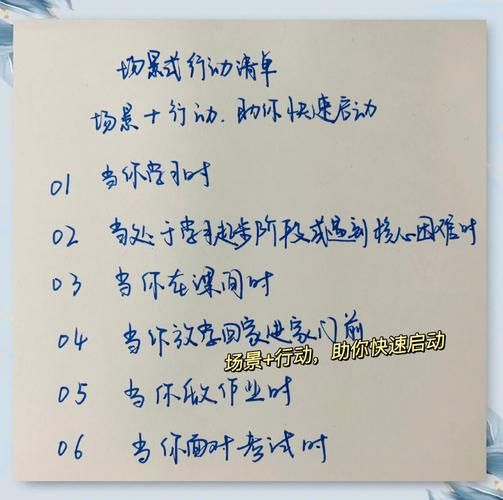 场景式行动清单
场景+行动.助你快速启动
01 当你学习时
02 当处于学习起步阶段或遇到核心困难时
03 当你在课间时
04 当你放学回家进家门前
场景+行动，助你快速启动
05 当你做作业时
06 当你面对考试时